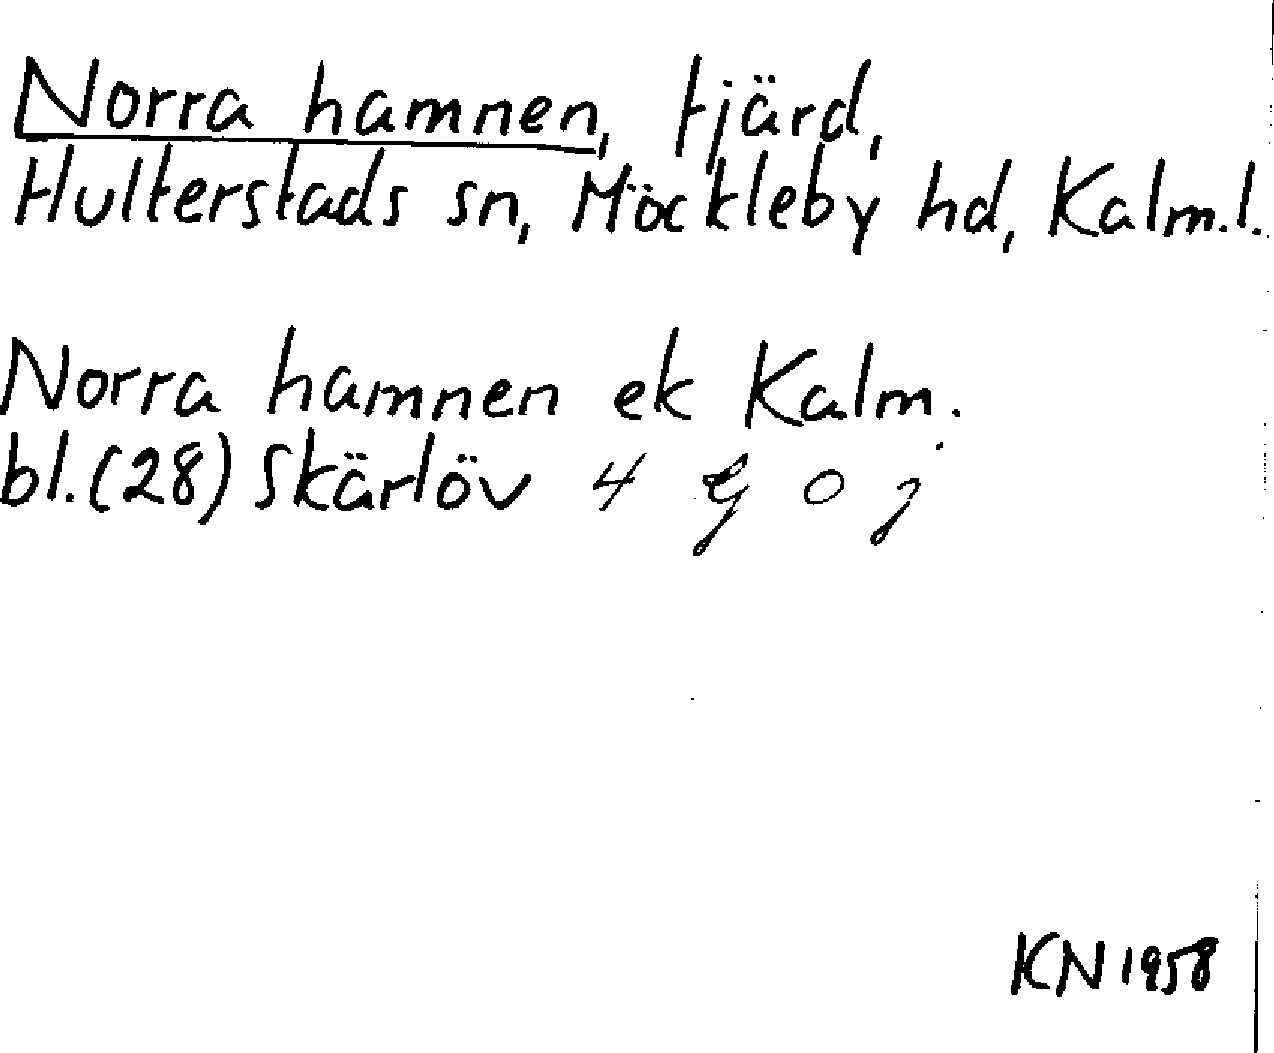 Norra hamnen, fjärd,
Hulterstads sn, Möckleby hd, Kalm.l.
Norra hamnen ek Kalm.
bl.(28) Skärlöv 4 g o j
KN 1958